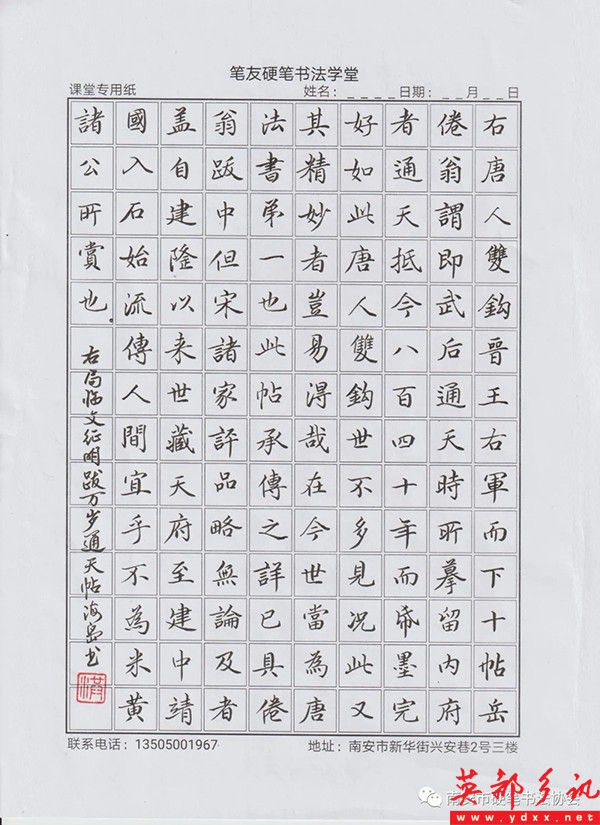 笔友硬笔书法学堂
课堂专用纸 姓名：_ _ _ _日期：_ _月_ _日
右唐人雙鈎晉王右軍而下十帖岳
倦翁謂即武后通天時所摹留内府
者通天抵今八百四十年而帋墨完
好如此唐人雙鈎世不多見况此又
其精妙者豈易得哉在今世當為唐
法書第一也此帖承傳之詳已具倦
翁跋中但宋諸家評品略無論及者
盖自建隆以来世藏天府至建中靖
國入石始流傳人間宜乎不為米黄
諸公所賞也。
右局临文征明跋万岁通天帖海岛书
联系电话：13505001967 地址：南安市新华街兴安巷2号三楼
南安市硬笔书法协会
英都乡讯
www.ydxx.net